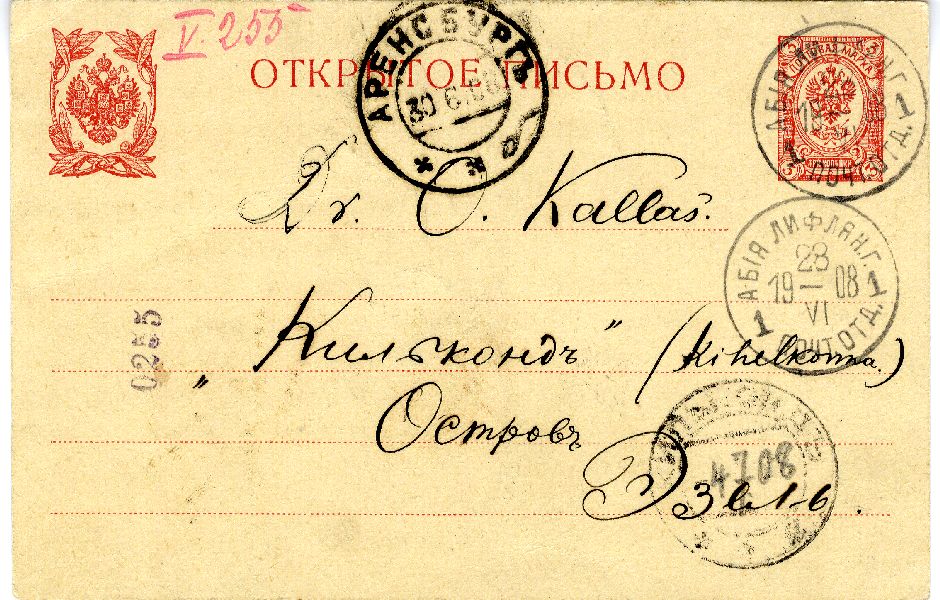 V. 255
ОТКРЫТОЕ ПИСЬМО
АРЕНСБУРГЪ
30 6.08
АБІЯ
1 ПОЧТ.ОТД. 1
Dr. O. Kallaš.
АБІЯ ЛИФЛЯН.Г.
28
19 — 08
VI
1 ПОЧТ.ОТД. 1
0255
„Килькондъ” (Kihelkonna.)
Островъ
Эзель.
4 7 08